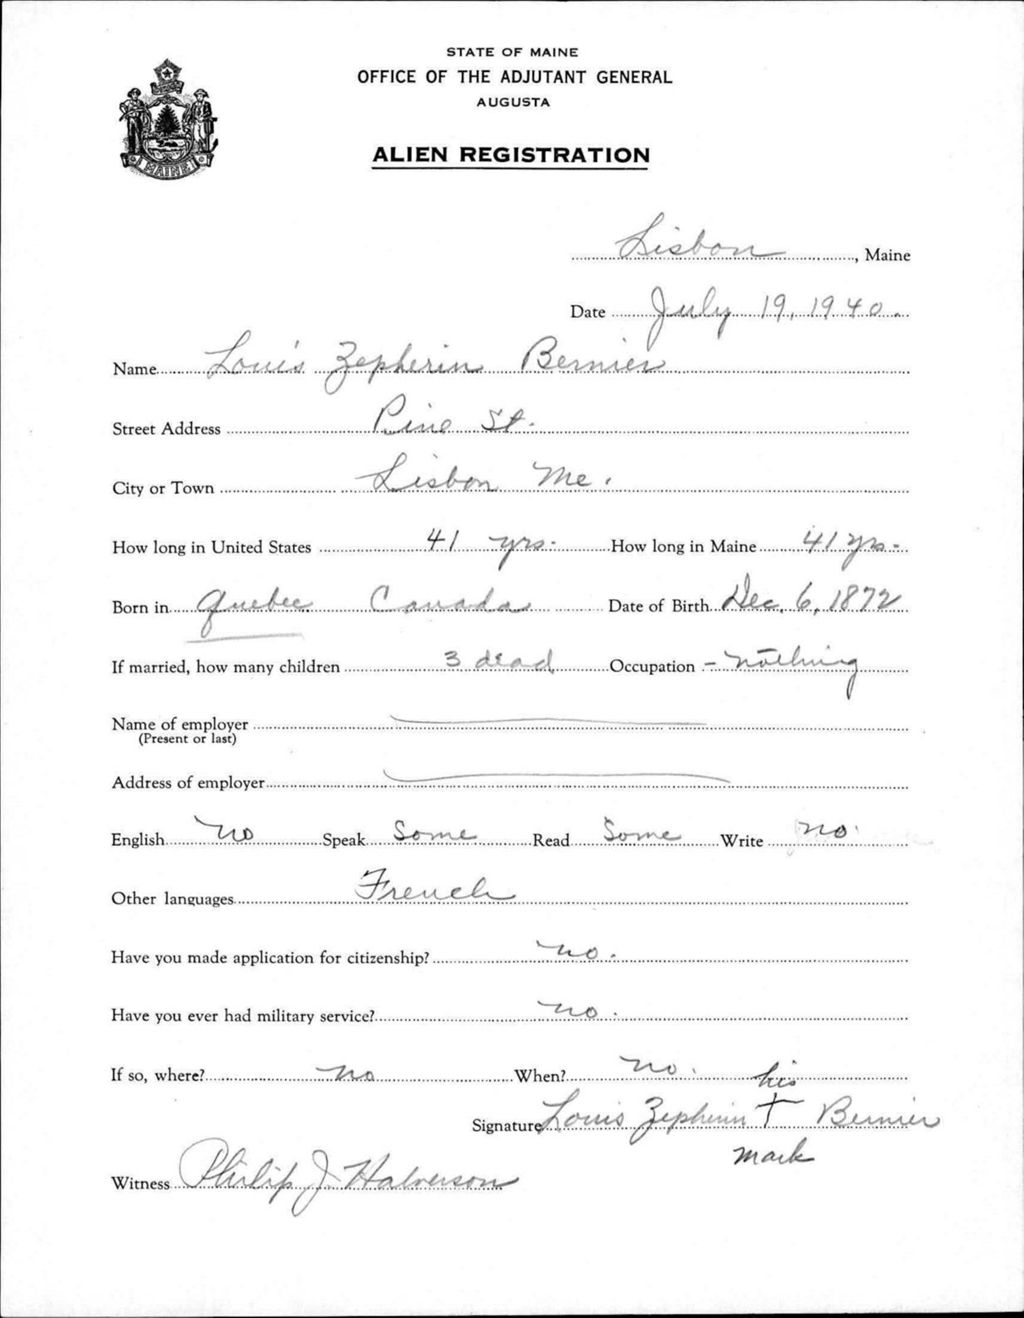 STATE OF MAINE
OFFICE OF THE ADJUTANT GENERAL
AUGUSTA
ALIEN REGISTRATION
MAINE
Lisbon, Maine
Date July 19, 1940.
Name Louis Zepherin Bernier
Street Address Pine St.
City or Town Lisbon Me.
How long in United States 41 yrs. How long in Maine 41 yrs.
Born in Quebec Canada Date of Birth Dec. 6, 1872
If married, how many children 3 dead Occupation - nothing
Name of employer
(Present or last)
Address of employer
English no Speak Some Read Some Write no
Other languages French
Have you made application for citizenship? no.
Have you ever had military service? no.
If so, where? no When? no.
his
Signature Louis Zepherin † Bernier
mark
Witness Philip J. Halverson